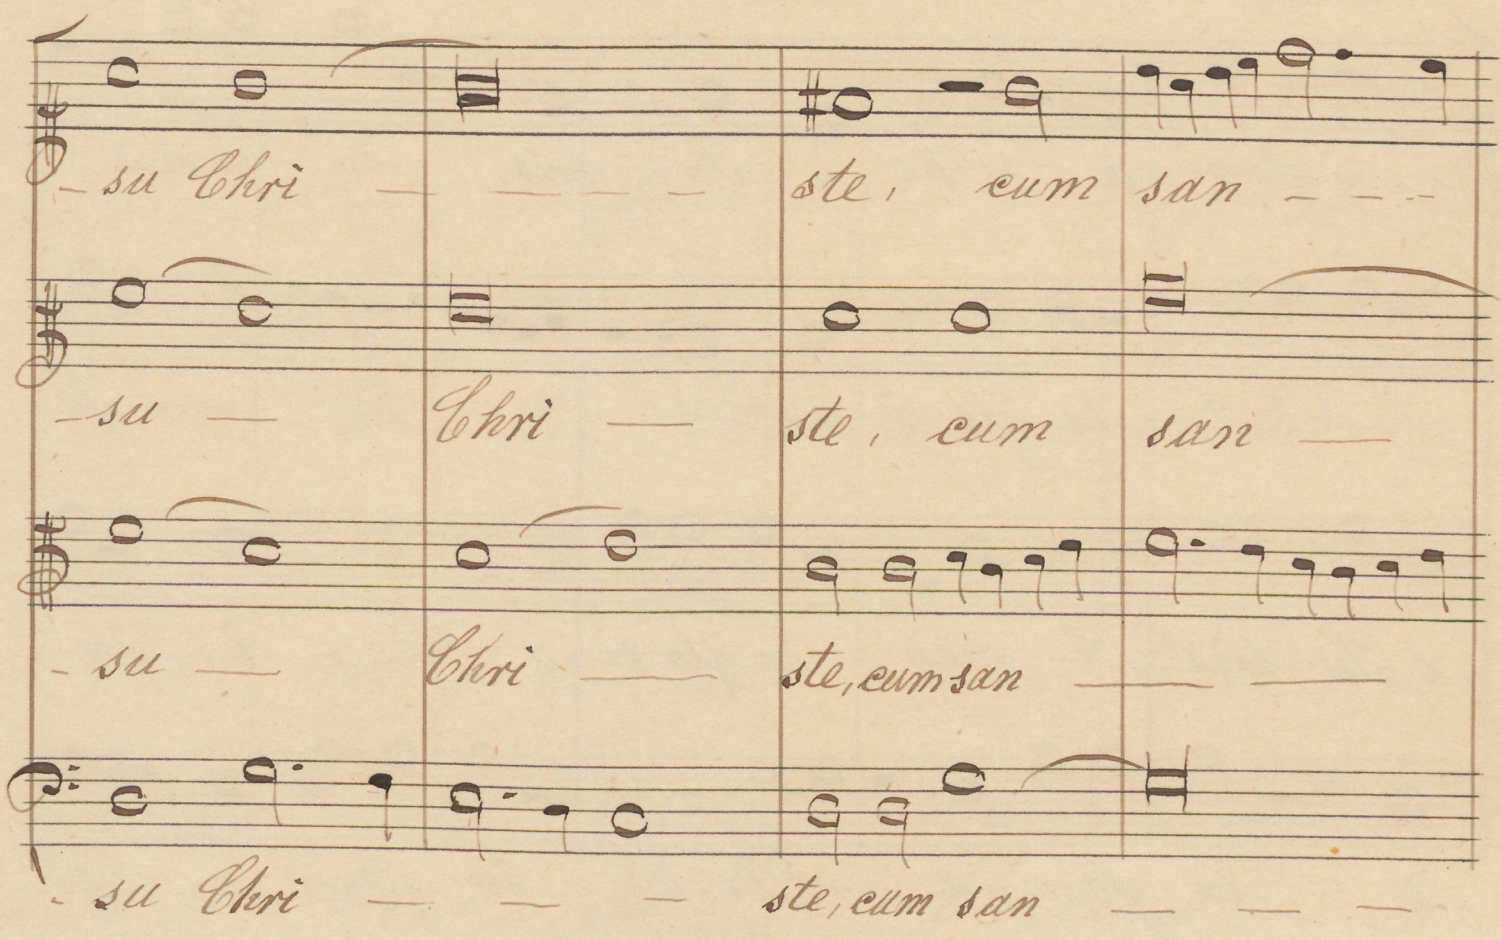 - su Chri - - - - - ste, cum san - - - -
- su - Chri - ste, cum san -
- su - Chri - ste, cum san - -
- su Chri - - - ste, cum san - - -